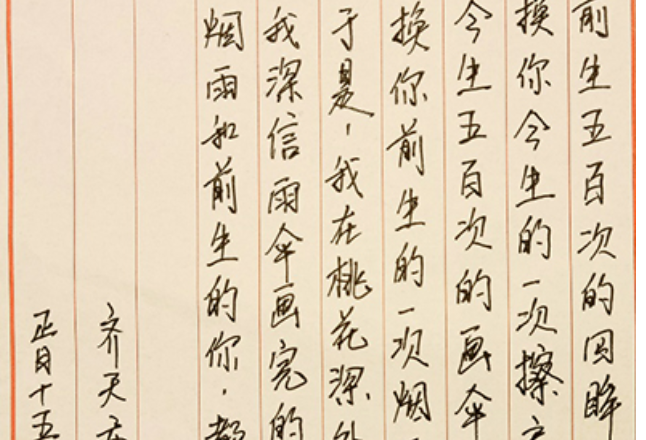 前生五百次的回眸
换你今生的一次擦
今生五百次的画伞
换你前生的一次烟
于是，我在桃花深
我深信雨伞画完的
烟雨和前生的你，都
齐天
正月十五